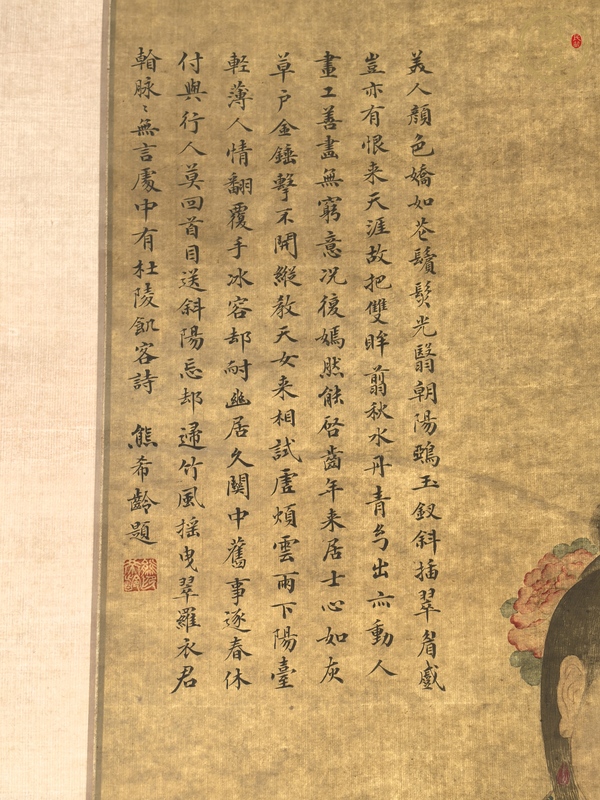 美人顔色嬌如花鬢髮光翳朝陽鵶玉釵斜插翠眉蹙
豈亦有恨来天涯故把雙眸翦秋水丹青乍出亦動人
畫工善畫無窮意况復嫣然能啓齒年来居士心如灰
草户金鍾擊不開縱教天女来相試虛煩雲雨下陽臺
軽薄人情翻覆手冰容却耐幽居久關中舊事逐春休
付與行人莫回首目送斜陽忘却歸竹風揺曳翠羅衣君
看脉〻無言處中有杜陵飢客詩 熊希齡題